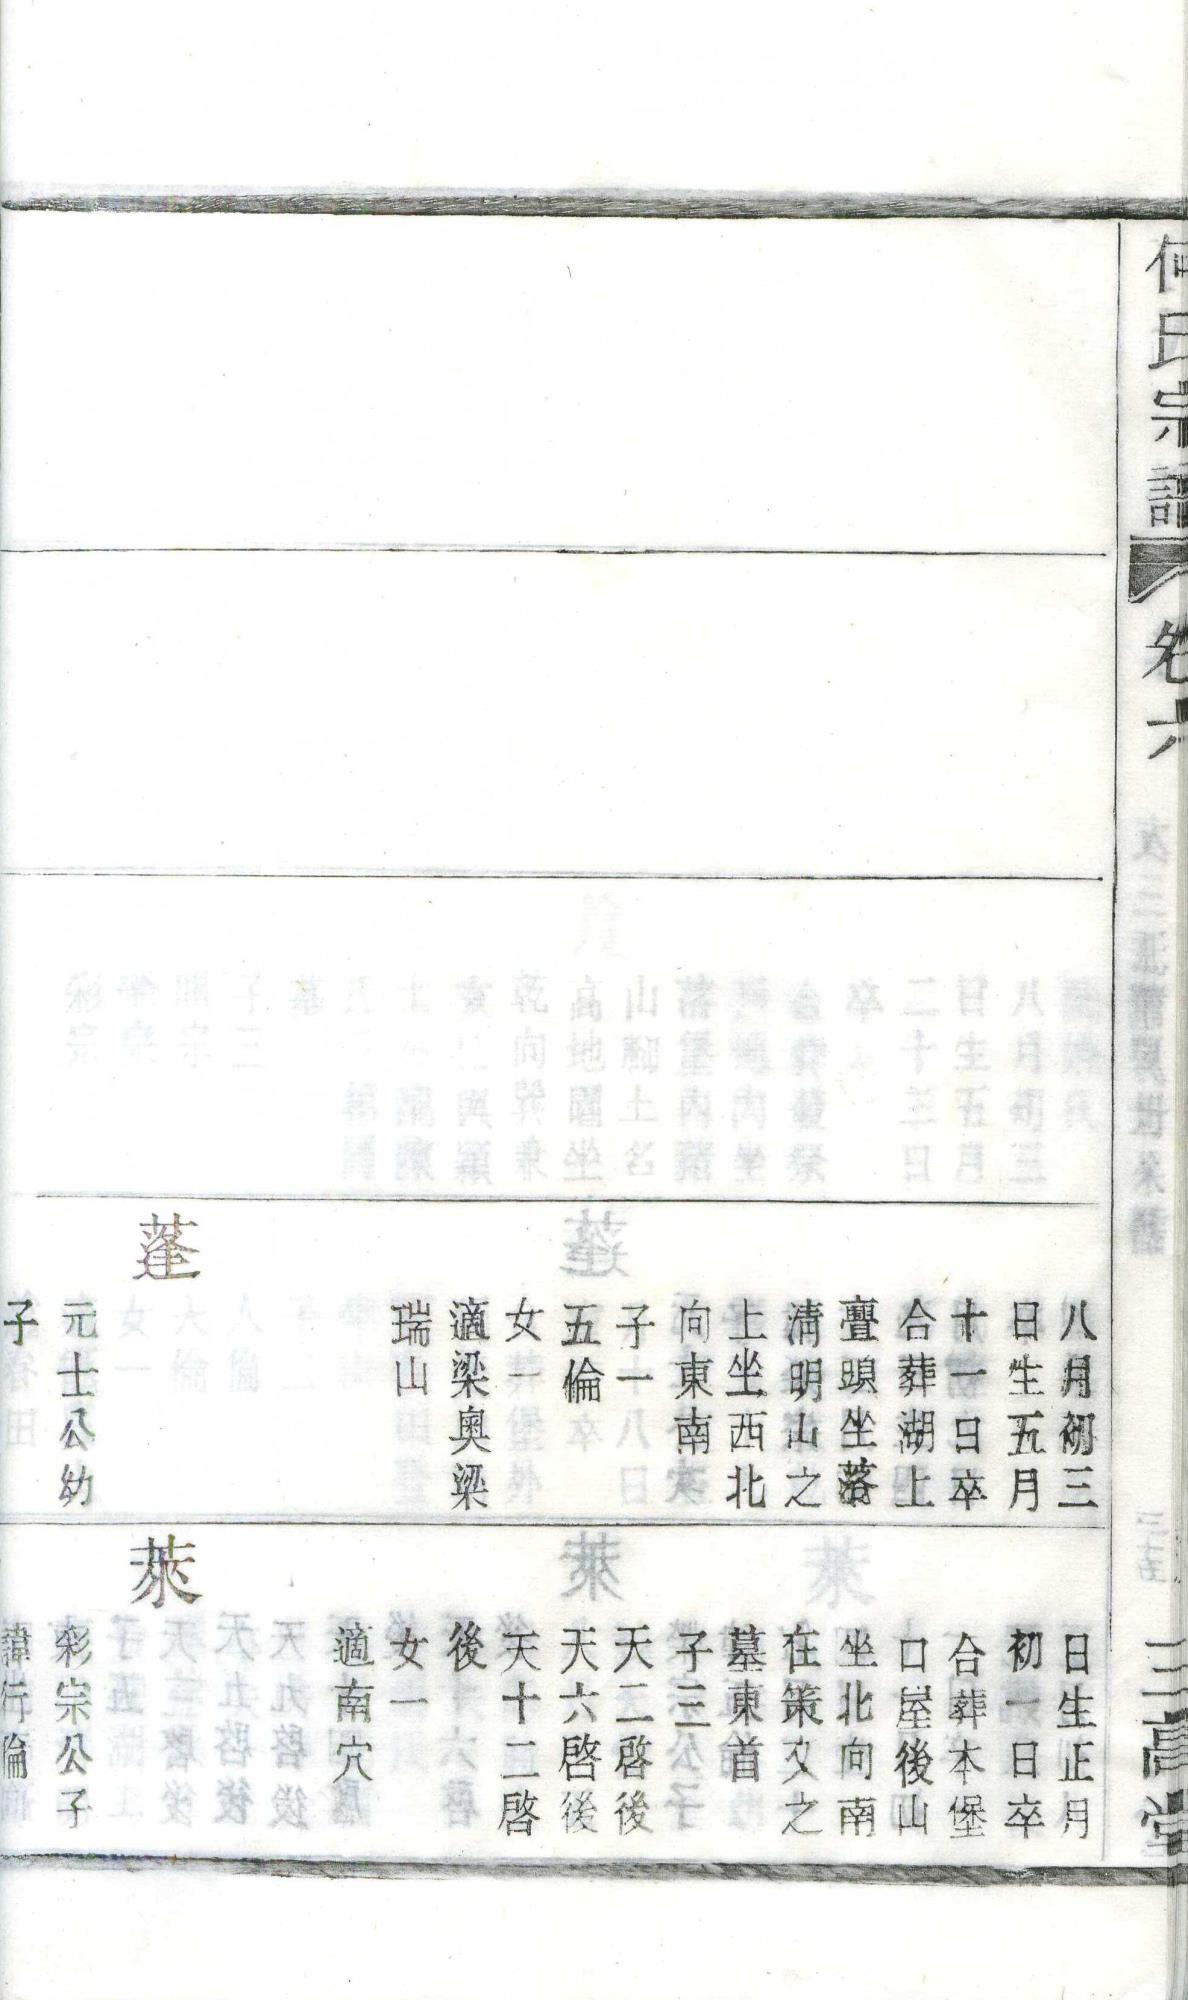 何氏宗譜
卷六
三高堂
八月初三
日生五月
十一日卒
合葬湖上
亹頭坐落
清明山之
上坐西北
向東南
子一
五倫
女一
適梁奥梁
瑞山
蓬
元士公幼
子
日生正月
初一日卒
合葬本堡
口屋後山
坐北向南
在策文之
墓東首
子三
天二啓後
天六啓後
天十二啓
後
女一
適南穴
萊
彩宗公子
諱行倫